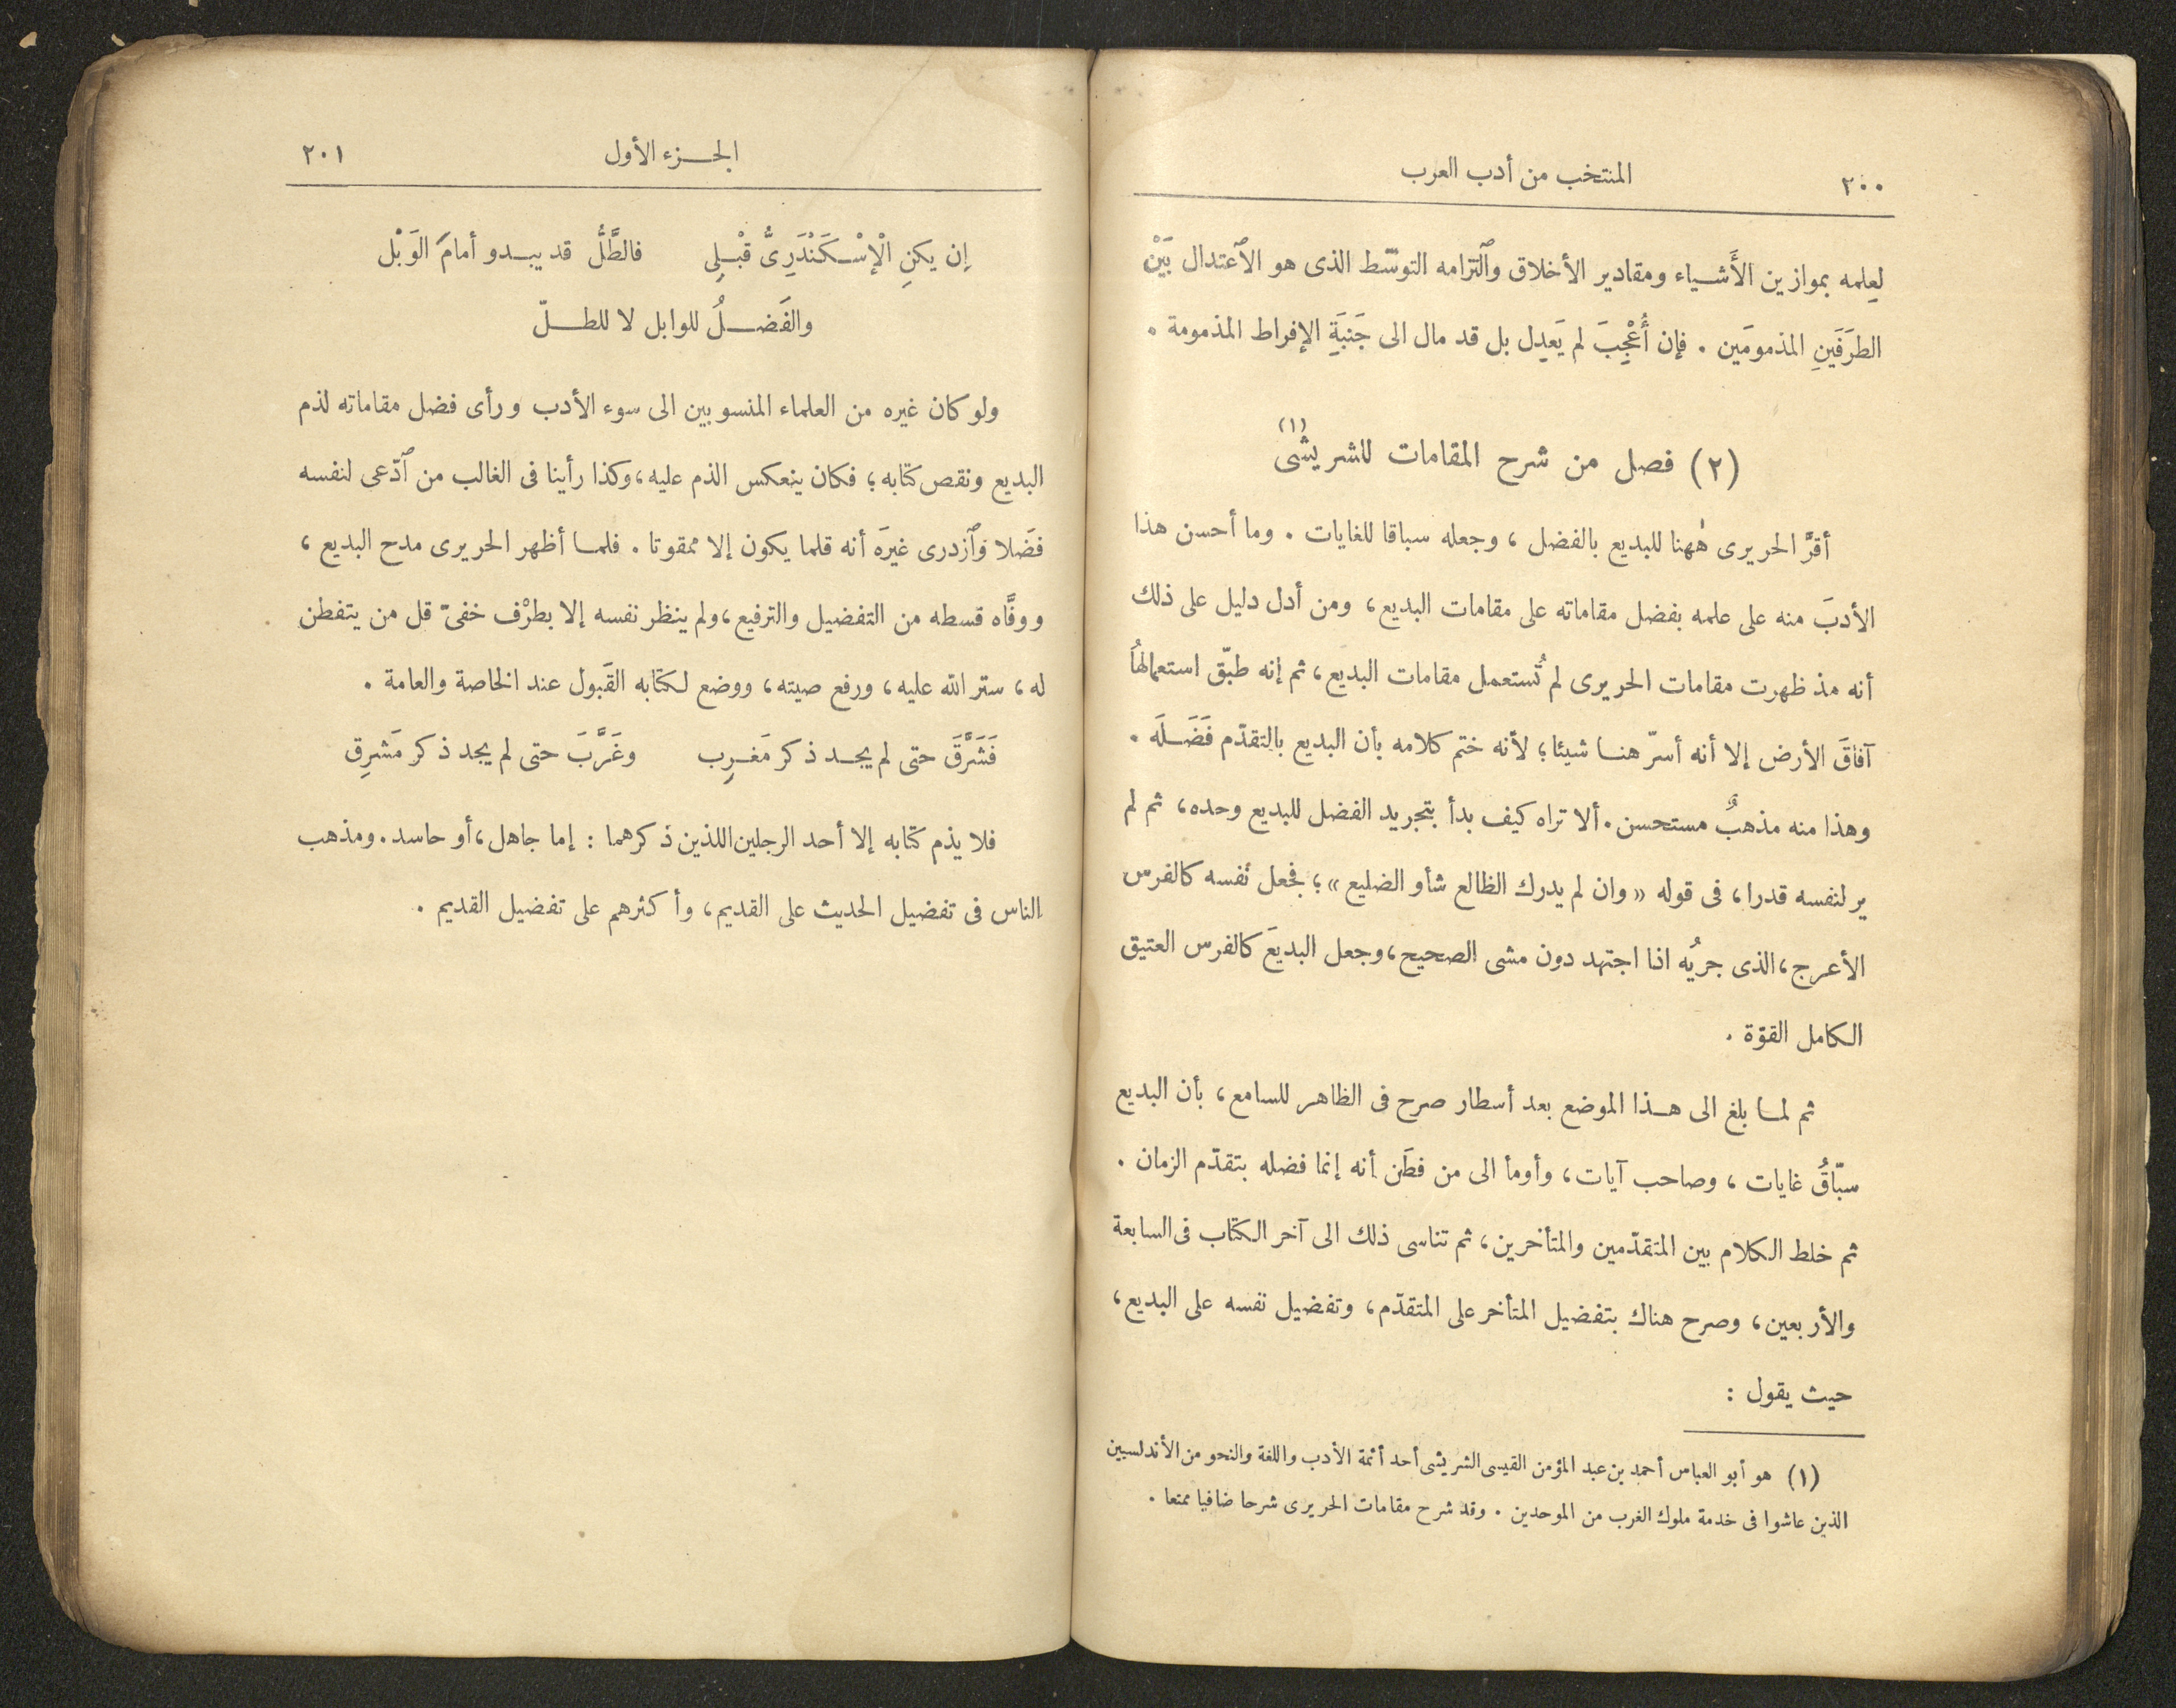 ٢٠٠
المنتخب من أدب العرب
لِعِلمه بموازين الأَشياء ومقادير الأخلاق وٱلتزامه التوسّط الذى هو الٱعتدال بَيْنَ
الطرَفَينِ المذمومَين . فإن أُعْجِبَ لم يَعدِل بل قد مال الى جَنبَةِ الإفراط المذمومة .
(٢) فصل من شرح المقامات للشريشى (١)
أقرَّ الحريرى هٰهنا للبديع بالفضل ، وجعله سباقا للغايات . وما أحسن هذا
الأدبَ منه على علمه بفضل مقاماته على مقامات البديع، ومن أدل دليل على ذلك
أنه مذ ظهرت مقامات الحريرى لم تُستعمل مقامات البديع، ثم إنه طبّق استعمالهُا
آفاقَ الأرض إلا أنه أسرّ هنا شيئا؛ لأنه ختم كلامه بأن البديع بالتقدّم فَضَلَه .
وهذا منه مذهبٌ مستحسن. ألا تراه كيف بدأ بتجريد الفضل للبديع وحده، ثم لم
ير لنفسه قدرا، فى قوله «وان لم يدرك الظالع شأو الضليع»؛ فجعل نفسه كالفرس
الأعرج، الذى جريُه اذا اجتهد دون مشى الصحيح، وجعل البديعَ كالفرس العتيق
الكامل القوّة .
ثم لما بلغ الى هذا الموضع بعد أسطار صرح فى الظاهر للسامع، بأن البديع
سبّاقُ غايات ، وصاحب آيات، وأومأ الى من فطَن أنه إنما فضله بتقدّم الزمان .
ثم خلط الكلام بين المتقدّمين والمتأخرين، ثم تناسى ذلك الى آخر الكتاب فى السابعة
والأربعين، وصرح هناك بتفضيل المتأخر على المتقدّم، وتفضيل نفسه على البديع،
حيث يقول :
(١) هو أبو العباس أحمد بن عبد المؤمن القيسى الشريشى أحد أئمة الأدب واللغة والنحو من الأندلسيين
الذين عاشوا فى خدمة ملوك الغرب من الموحدين . وقد شرح مقامات الحريرى شرحا ضافيا ممتعا .
الجزء الأول
٢٠١
إن يكنِ الْإسْكَنْدَرِىُّ قبْلِى فالطَّلُّ قد يبدو أمامَ الوَبْل
والفَضلُ للوابل لا للطلّ
ولو كان غيره من العلماء المنسوبين الى سوء الأدب ورأى فضل مقاماته لذم
البديع ونقص كتابه؛ فكان ينعكس الذم عليه، وكذا رأينا فى الغالب من ٱدّعى لنفسه
فضَلا وٱزدرى غيرَه أنه قلما يكون إلا ممقوتا . فلما أظهر الحريرى مدح البديع ،
ووفَّاه قسطه من التفضيل والترفيع، ولم ينظر نفسه إلا بطرْف خفىّ قل من يتفطن
له، ستر الله عليه، ورفع صيته، ووضع لكتابه القَبول عند الخاصة والعامة .
فَشَرَّقَ حتى لم يجد ذكر مَغرِب وغَرَّبَ حتى لم يجد ذكر مَشرِق
فلا يذم كتابه إلا أحد الرجلين اللذين ذكرهما : إما جاهل، أو حاسد. ومذهب
الناس فى تفضيل الحديث على القديم، وأكثرهم على تفضيل القديم .